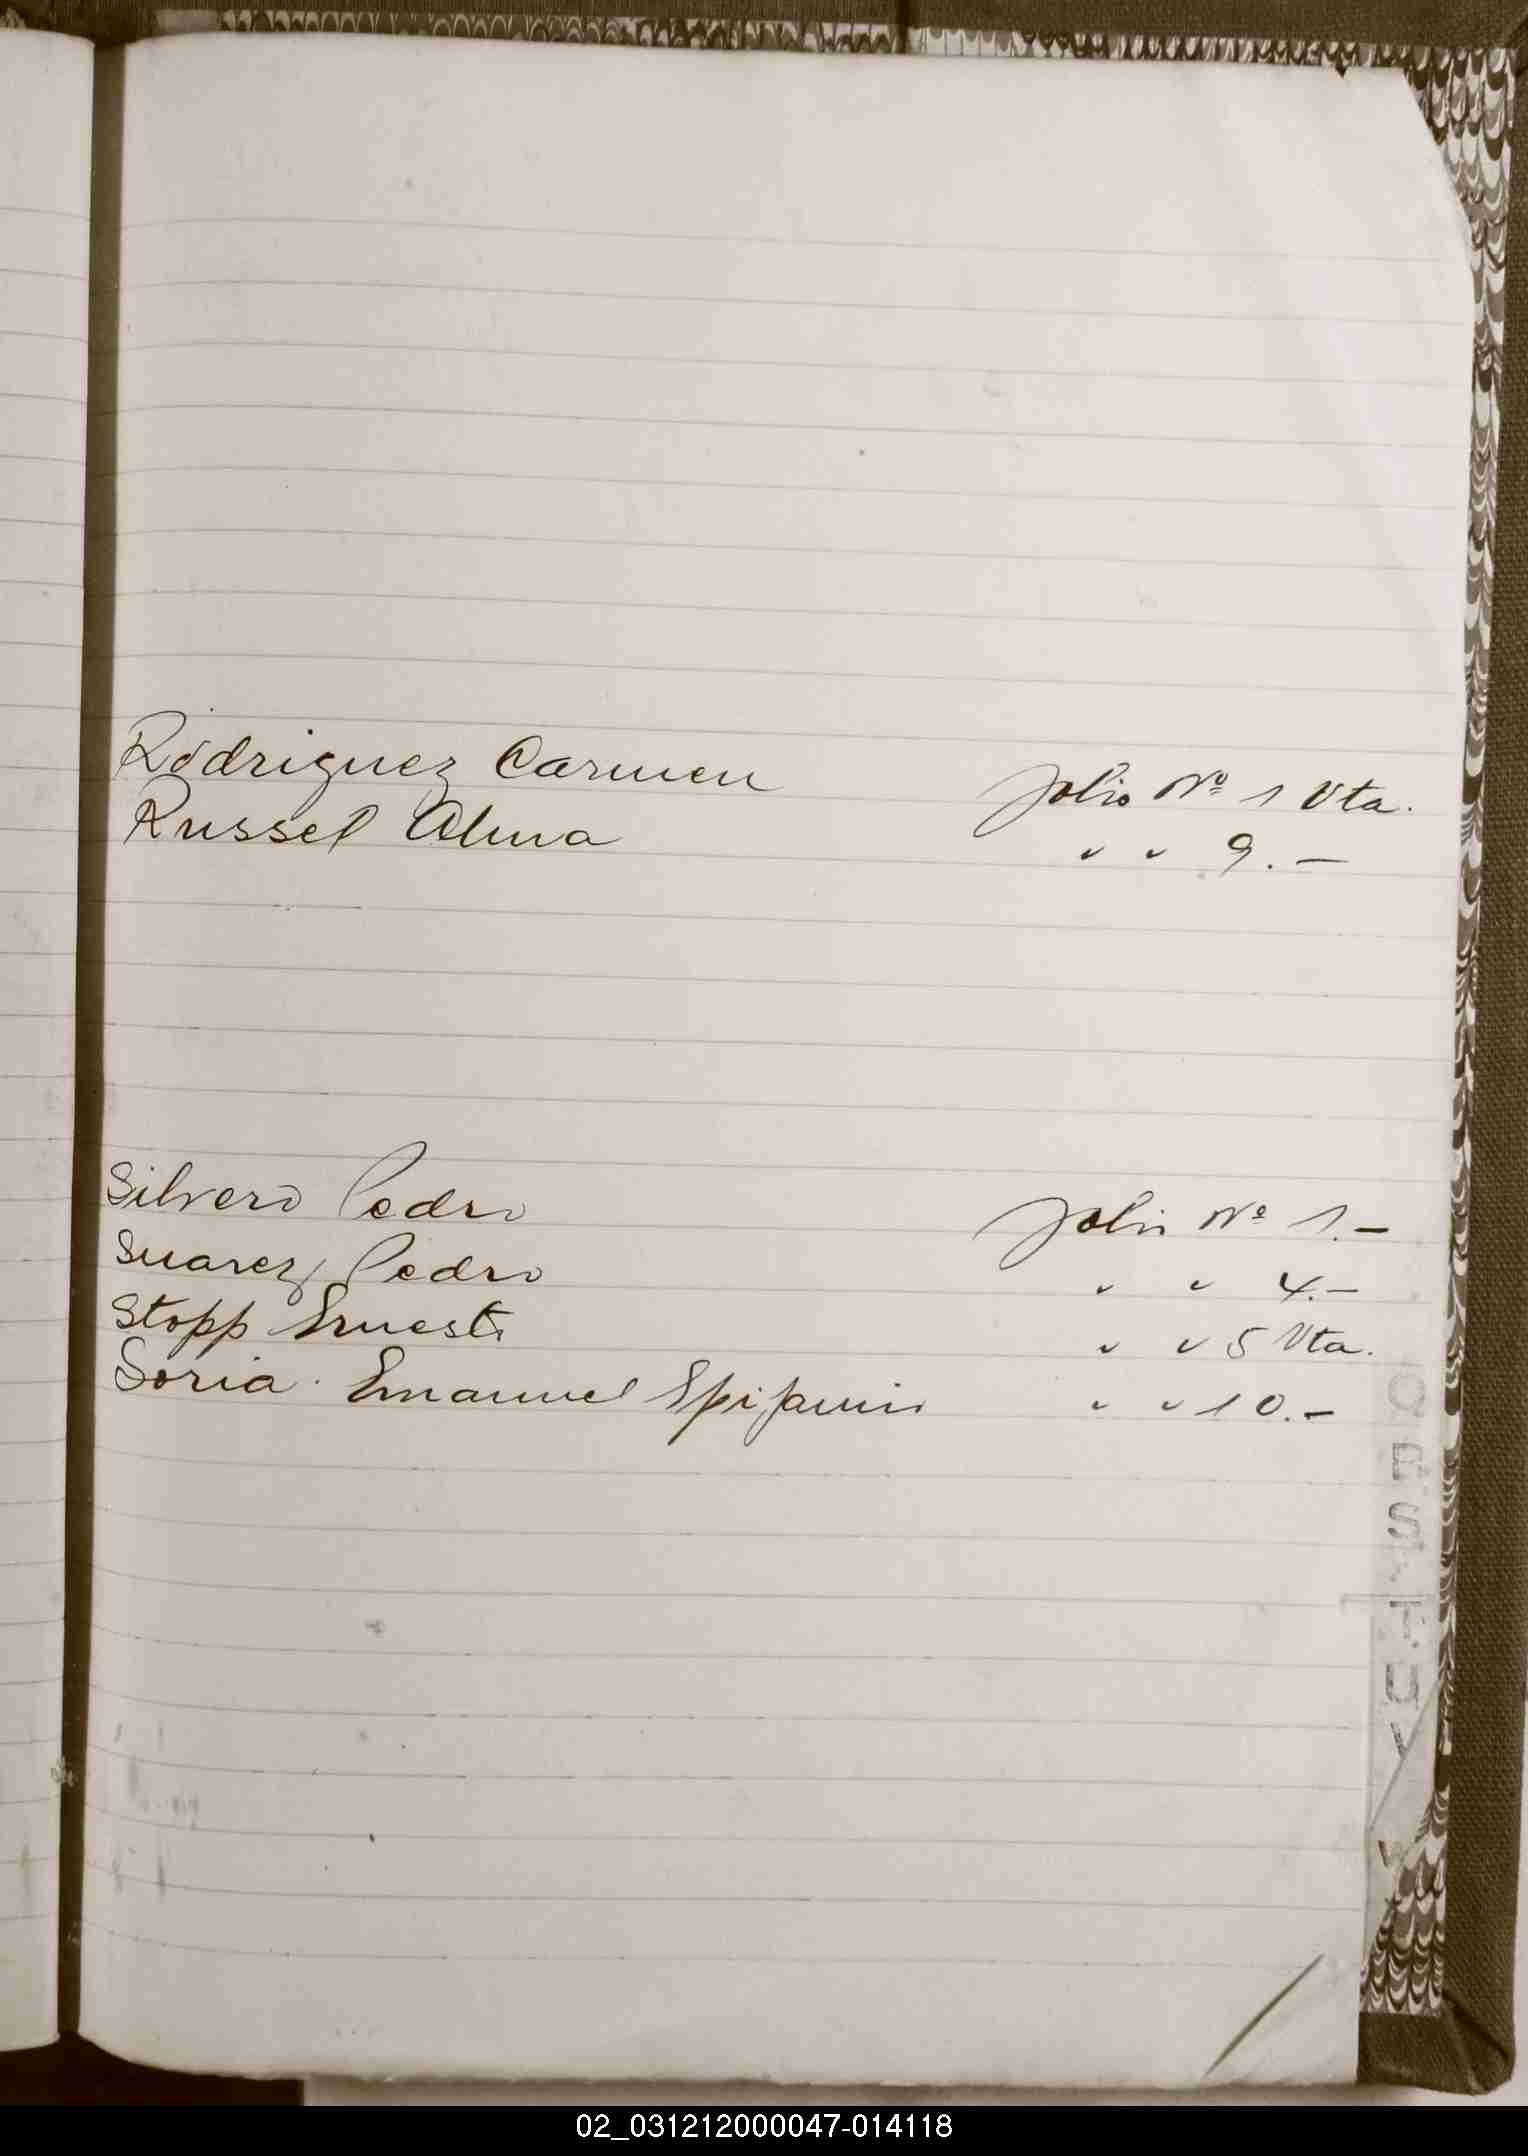 Rodriguez Carmen Folio Nº 1 Vta.
Russel Alma " " 9.—
Silvero Pedro Folio Nº 1.—
Suarez Pedro " " 4.—
Stopp Ernesto " " 5 Vta.
Soria Emanuel Epifanio " " 10.—
02_031212000047-014118